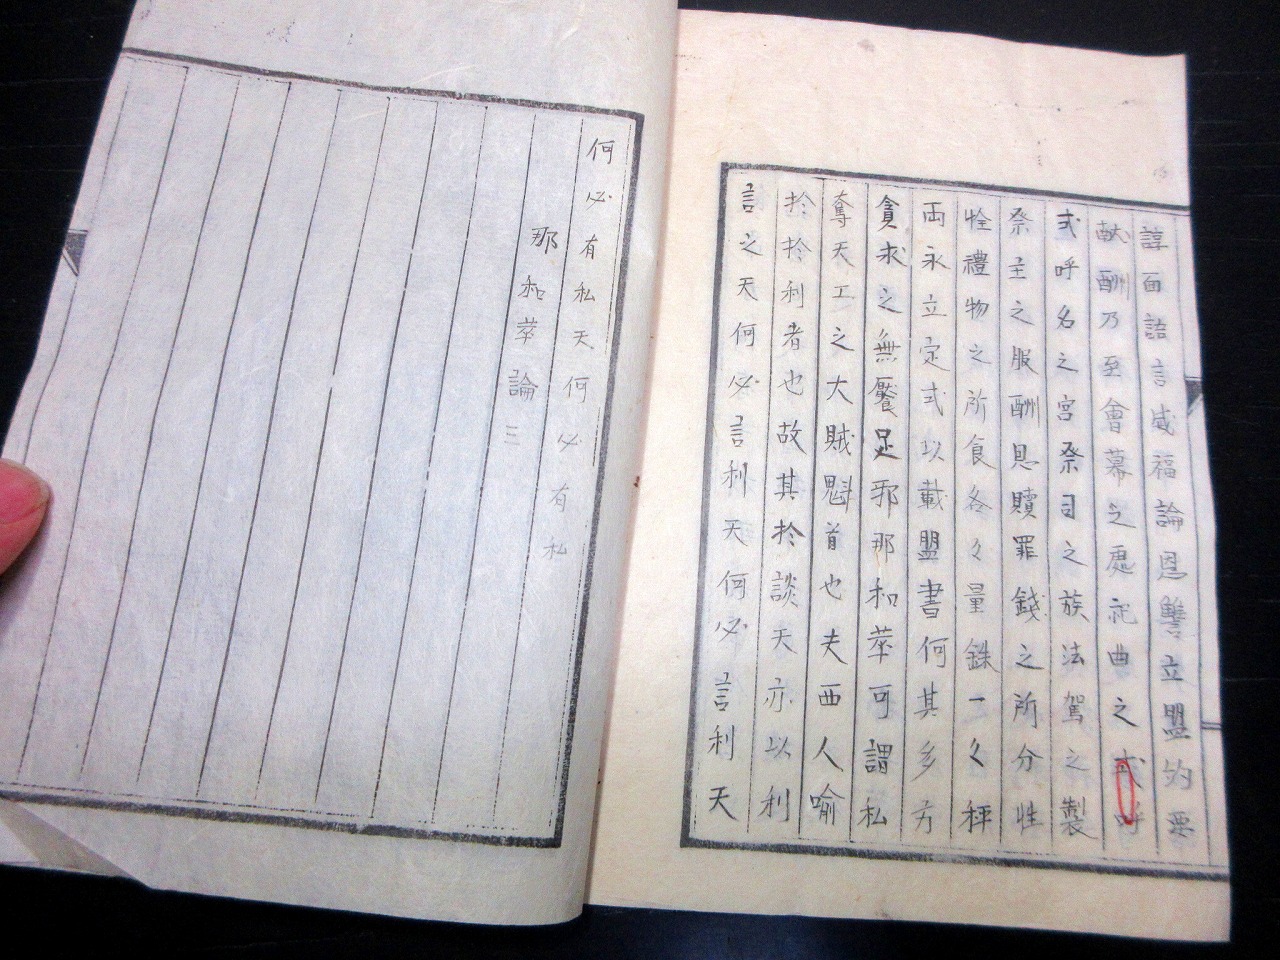 諄面語言威福論恩讐立盟約要
献酬乃至會幕之處祀曲之式呼
式呼名之宮祭司之族法駕之製
祭主之服酬恩贖罪錢之所分牲
牷禮物之所食各々量銖一々秤
両永立定式以載盟書何其多方
貪求之無饜足邪那和華可謂私
奪天工之大賊魁首也夫西人喻
扵扵利者也故其扵談天亦以利
言之天何必言利天何必言利天
何必有私天何必有私
那和華論三